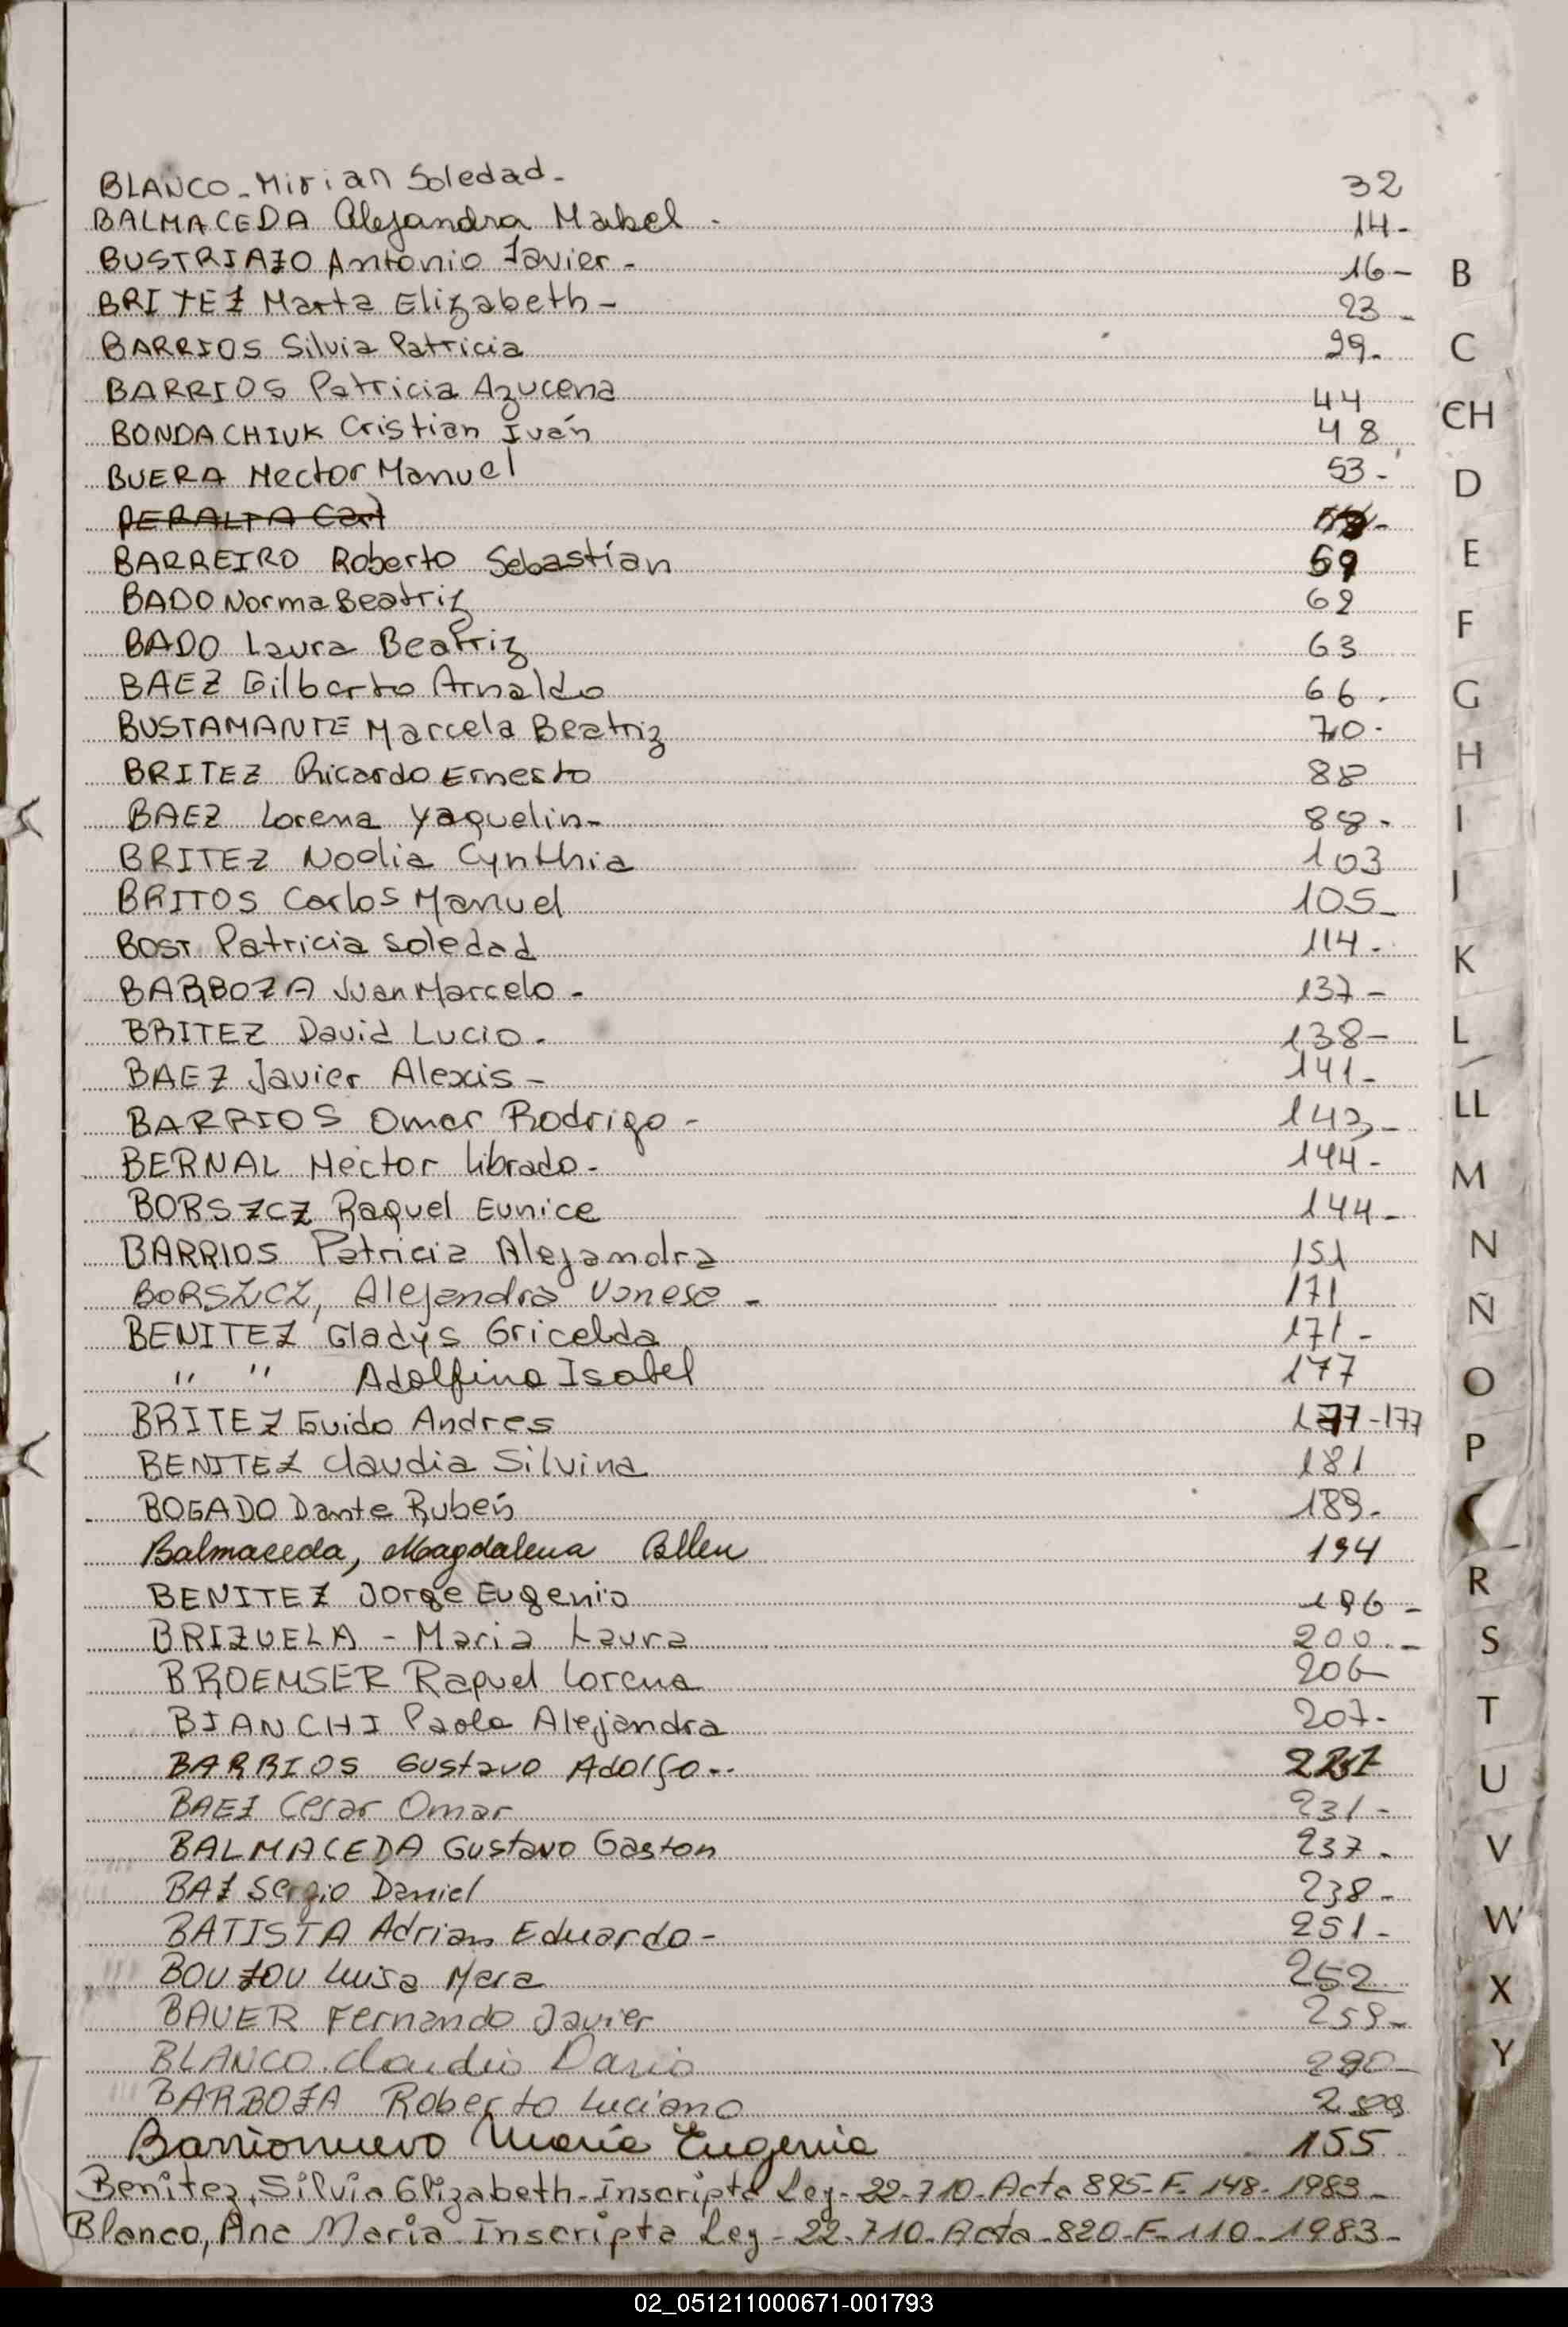 BLANCO - Mirian Soledad - 32
BALMACEDA Alejandra Mabel - 14 -
BUSTRIAZO Antonio Javier - 16 -
BRITEZ Marta Elizabeth - 23 -
BARRIOS Silvia Patricia 29 -
BARRIOS Patricia Azucena 44
BONDACHIUK Cristian Iván 48
BUERA Hector Manuel 53 -
PERALTA
BARREIRO Roberto Sebastían 59
BADO Norma Beatriz 62
BADO Laura Beatriz 63
BAEZ Gilberto Arnaldo 66 -
BUSTAMANTE Marcela Beatriz 70 -
BRITEZ Ricardo Ernesto 88
BAEZ Lorena Yaquelin - 88 -
BRITEZ Noelia Cynthia 103
BRITOS Carlos Manuel 105 -
BOST Patricia Soledad 114 -
BARBOZA Juan Marcelo - 137 -
BRITEZ David Lucio - 138 -
BAEZ Javier Alexis - 141 -
BARRIOS Omar Rodrigo - 143 -
BERNAL Hector Librado - 144 -
BORSZCZ Raquel Eunice 144 -
BARRIOS Patricia Alejandra 151
BORSZCZ, Alejandra Vanesa - 171
BENITEZ Gladys Gricelda 171 -
" " Adolfina Isabel 177
BRITEZ Guido Andres 177 - 177
BENITEZ Claudia Silvina 181
BOGADO Dante Rubén 189 -
Balmaceda, Magdalena 194
BENITEZ Jorge Eugenio 196 -
BRIZUELA - Maria Laura 200 -
BROEMSER Raquel Lorena 206
BIANCHI Paola Alejandra 207 -
BARRIOS Gustavo Adolfo --
BAEZ Cesar Omar 231 -
BALMACEDA Gustavo Gaston 237 -
BAZ Sergio Daniel 238 -
BATISTA Adrian Eduardo - 251 -
BOUZOU Luisa Mara 252
BAUER Fernando Javier 259 -
BLANCO Claudio Dario 290 -
BARBOZA Roberto Luciano
Barrionuevo María Eugenia 155
Benitez, Silvia Elizabeth - Inscripta Ley - 22.710 - Acta 895 - F - 148 - 1983 -
Blanco, Ana Maria - Inscripta Ley - 22.710 - Acta - 820 - F - 110 - 1983 -
B
C
CH
D
E
F
G
H
I
J
K
L
LL
M
N
Ñ
O
P
R
S
T
U
V
W
X
Y
02_051211000671-001793